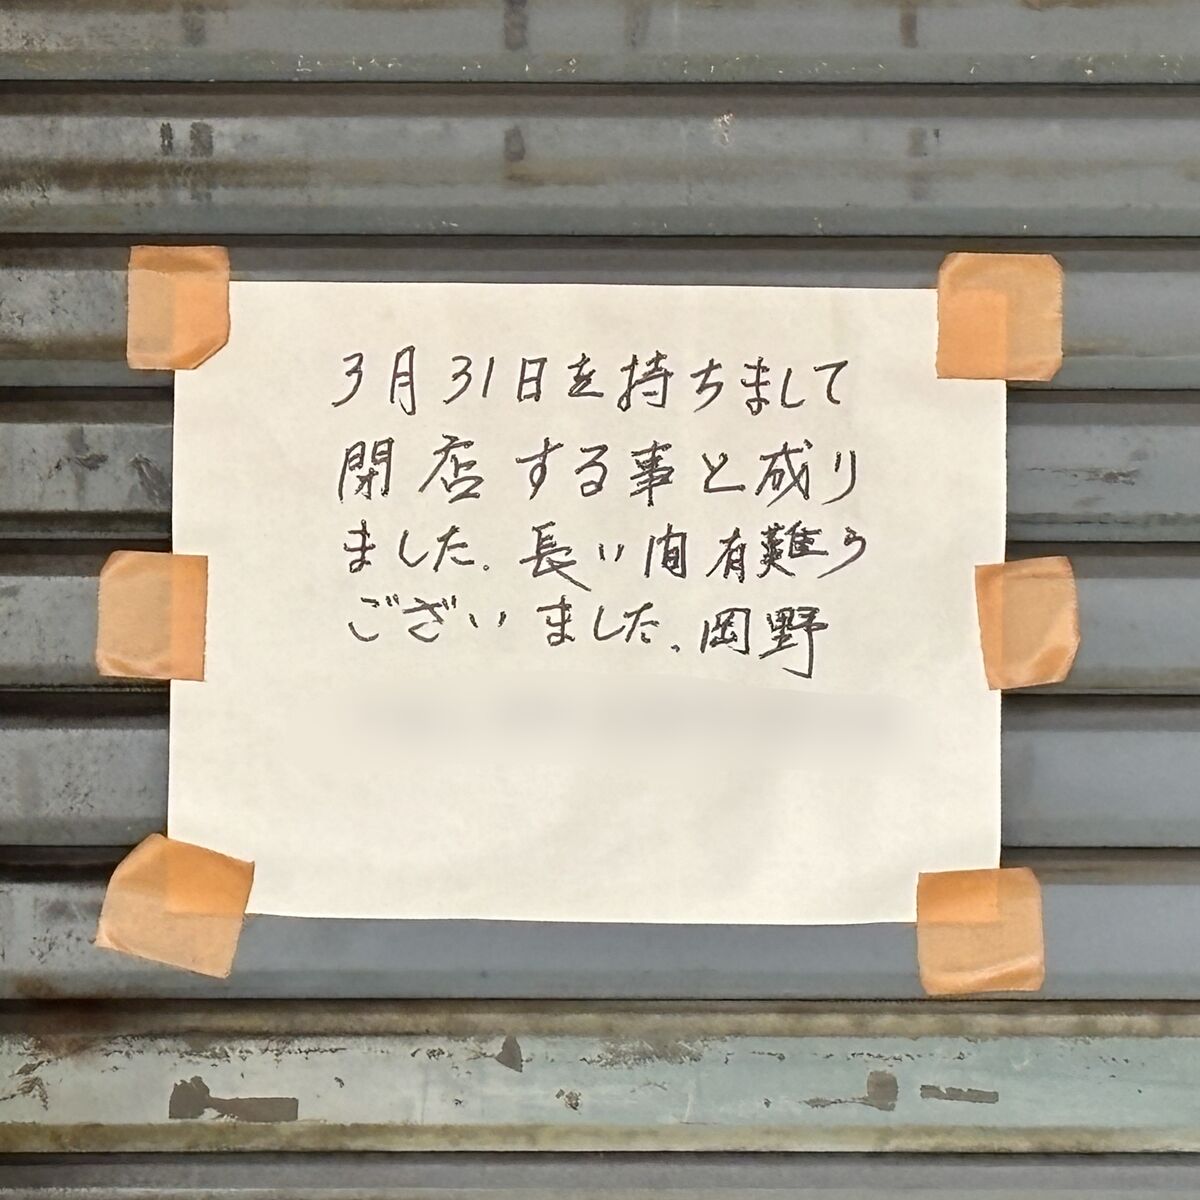 3月31日を持ちまして
閉店する事と成り
ました。長い間有難う
ございました。岡野